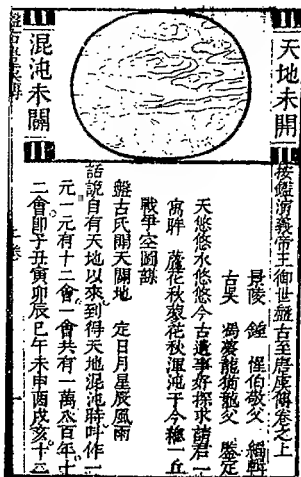 天地未開
混沌未闢
按鑑演義帝王御世盤古至唐虞傳卷之上
景陵 鍾 惺伯敬父 編輯
古吳 馮夢龍猶龍父 鑒定
天悠悠水悠悠今古遺事好探求請君一
寓眸 蘆花秋蓼花秋渾沌于今總一丘
戰爭空圖謀
盤古氏開天闢地 定日月星辰風雨
話說自有天地以來到得天地混沌時叫作一
元一元有十二會一會共有一萬八百年十
二會即子丑寅卯辰巳午未申酉戌亥十二